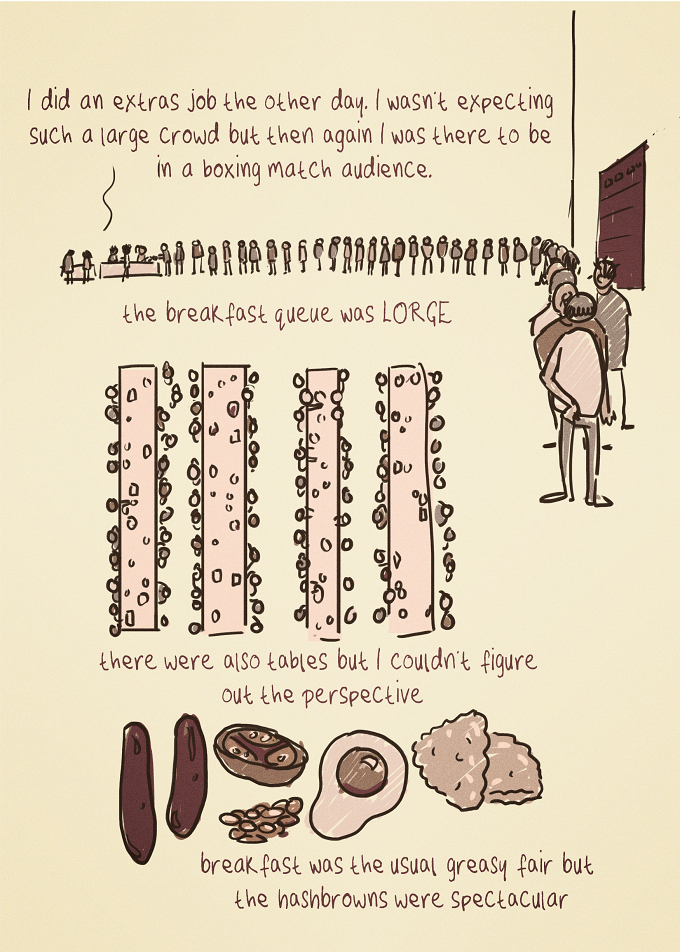 I did an extras job the other day. I wasn't expecting
such a large crowd but then again I was there to be
in a boxing match audience.
the breakfast queue was LORGE
there were also tables but I couldn't figure
out the perspective
breakfast was the usual greasy fair but
the hashbrowns were spectacular